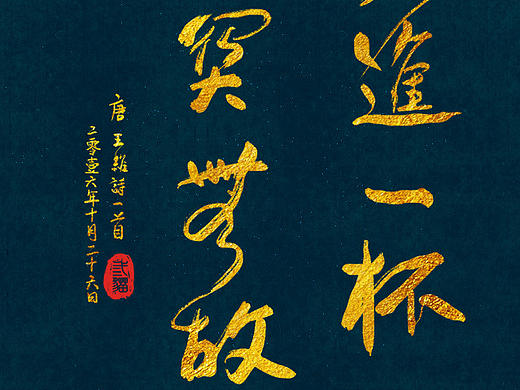 進一杯
関無故
唐 王維詩一首
二零壹六年十月二十六日